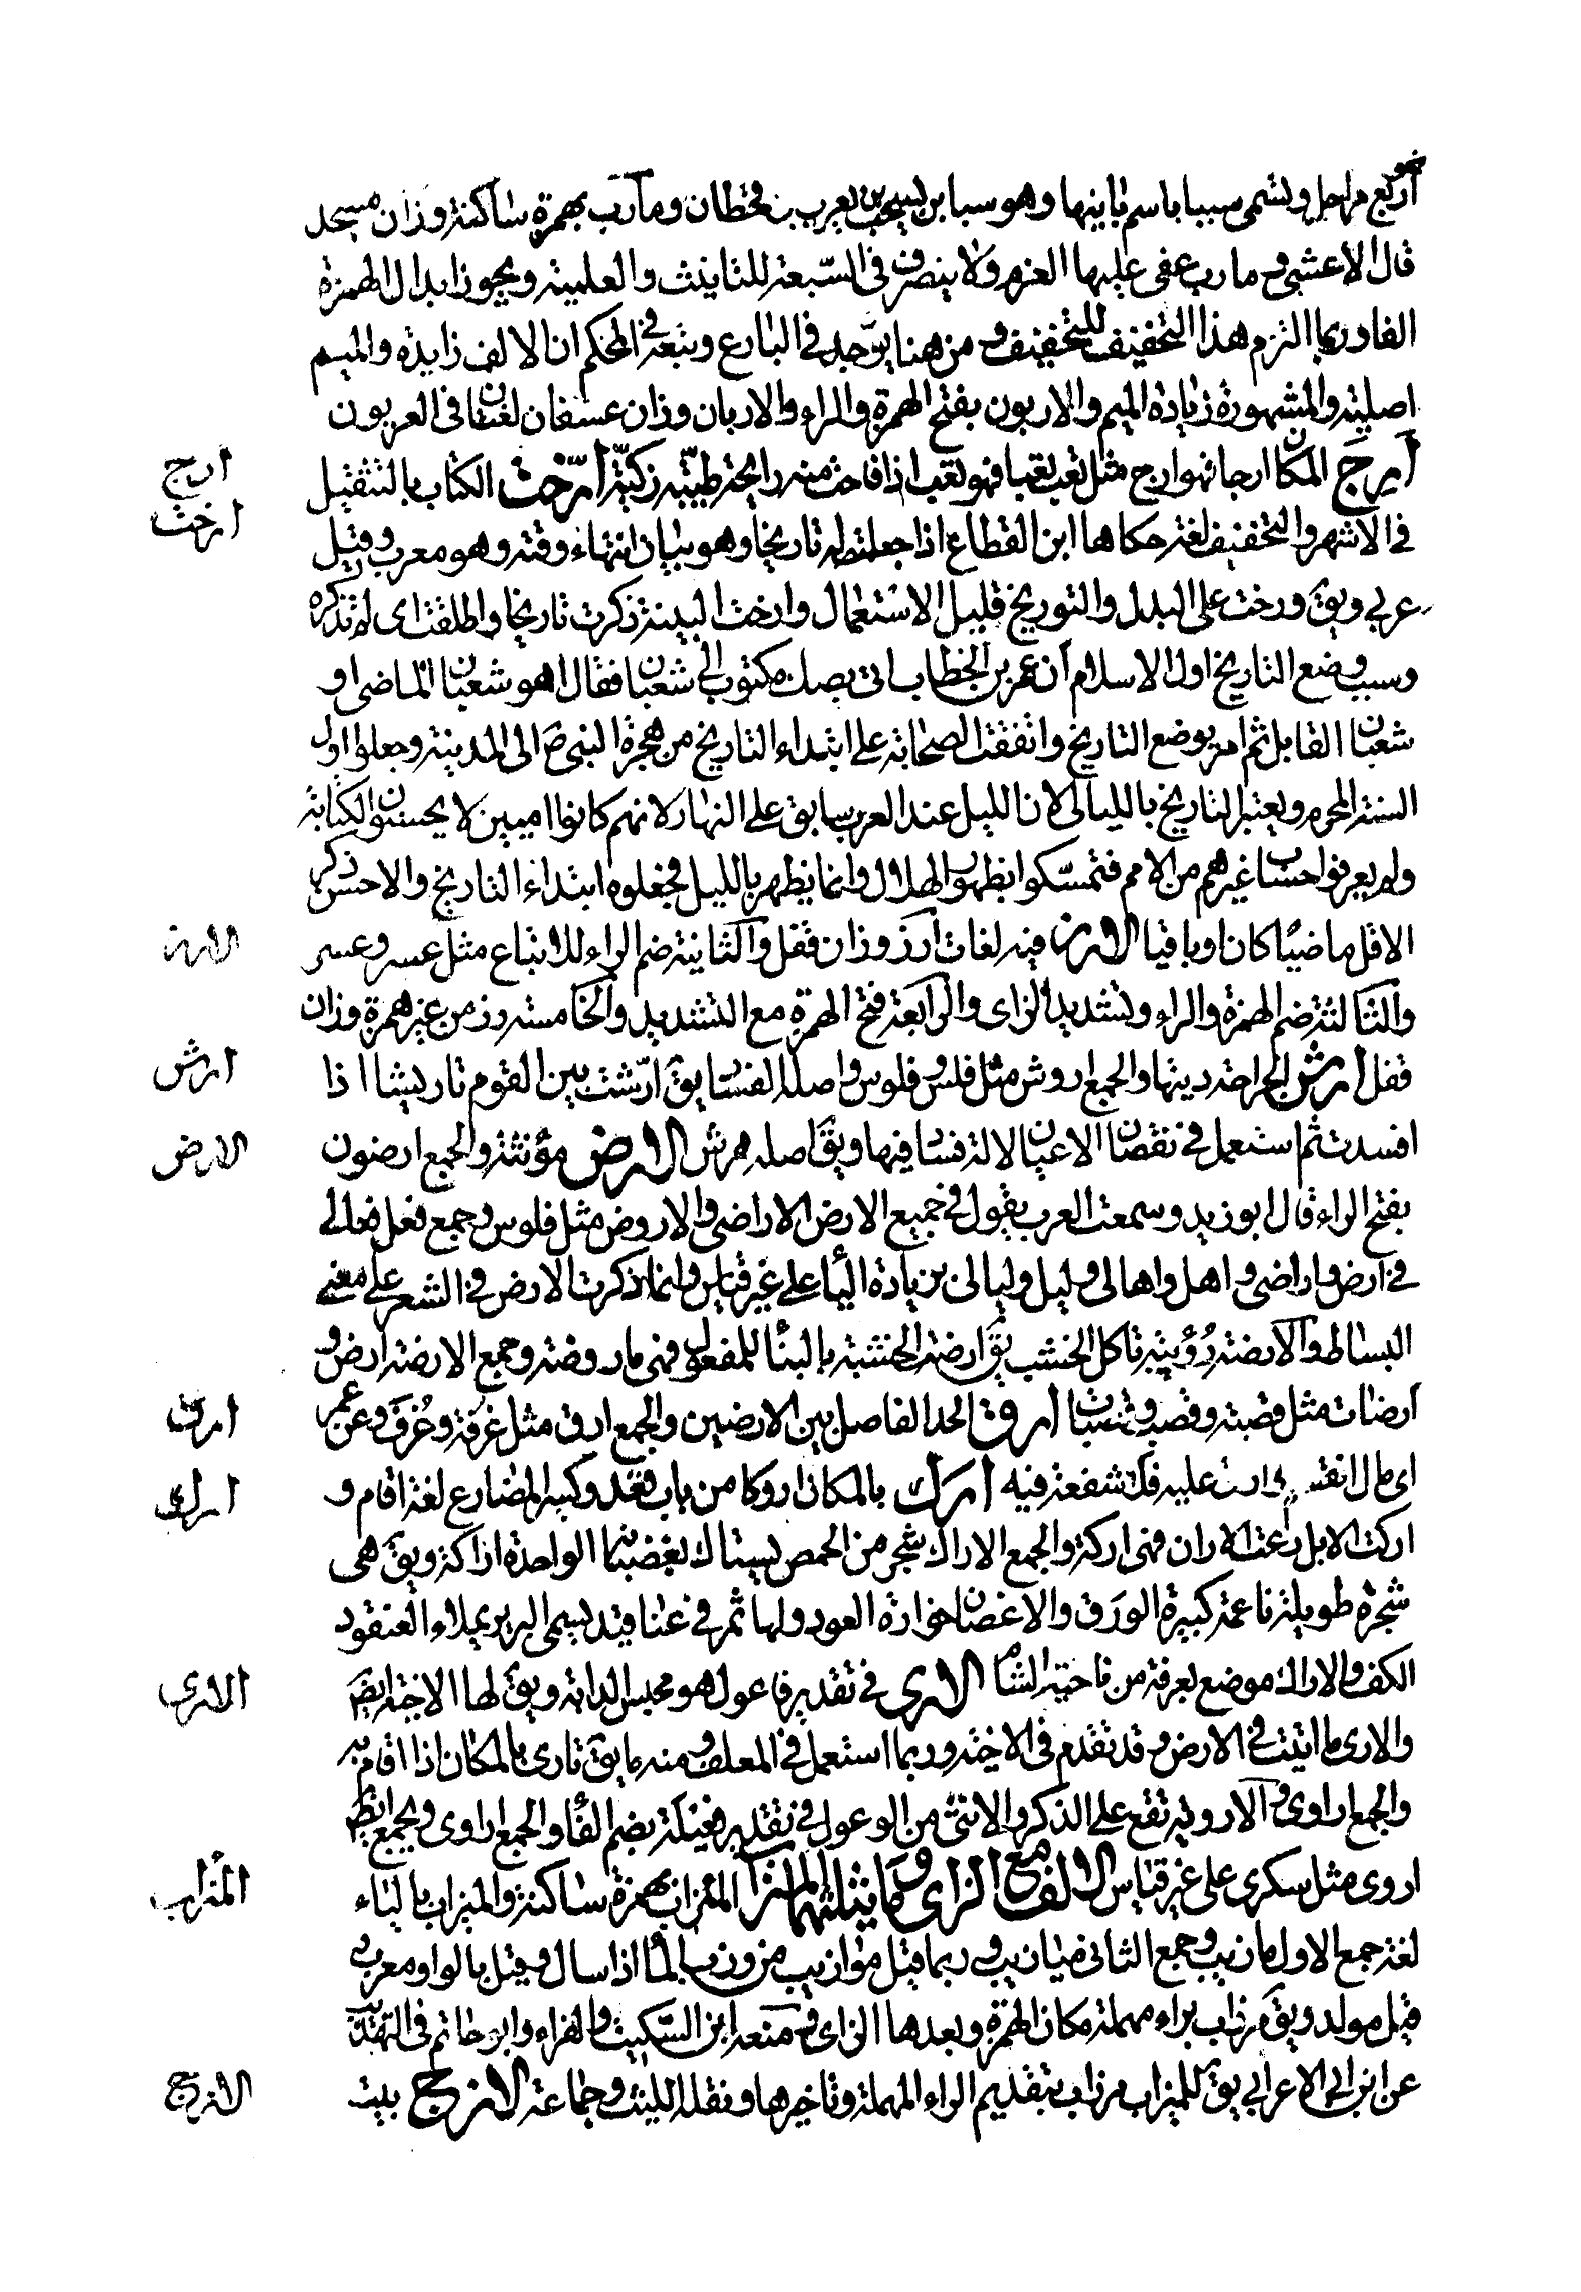 نحو
أربع مراحل وتسمى سببا باسم بانيها وهو سبا بن يشجب بن يعرب بن قحطان ومأرب بهمزة ساكنة وزان مسجد
قال الاعشى ومارب عفى عليها العرم ولا ينصرف فى السّبعة للتانيث والعلمية ويجوز ابدال الهمزة
الفا وربما التزم هذا التخفيف للتخفيف ومن هنا يوجد فى البارع وتبعه فى المحكم ان الالف زايدة والميم
اصلية والمشهورة زيادة الميم والاربون بفتح الهمزة والراء والاربان وزان عسفان لغتان فى العربون
أرِجَ المكان ارجا فهو ارج مثل تعب تعبا فهو تعب اذا فاحت منه رايحة طيّبة زكيّة أرّخت الكتاب بالتثقيل
ارج
ارخت
فى الاشهر والتخفيف لغة حكاها ابن القطاع اذا جعلت له تاريخا وهو بيان انتهاء وقته وهو معرب وقيل
عربى ويقَ ورخت على البدل والتوريخ قليل الاستعمال وارخت البينة ذكرت تاريخا واطلقت اى لم تذكره
وسبب وضع التاريخ اول الاسلام أن عمر بن الخطاب اتى بصك مكتوب الى شعبان فقال اهو شعبان الماضى او
شعبان القابل ثم امر بوضع التاريخ واتفقت الصحابة على ابتداء التاريخ من هجرة النبى صَ الى المدينة وجعلوا اول
السنة المحرم ويعتبر التاريخ بالليالى لان الليل عند العرب سابق على النهار لانهم كانوا اميين لا يحسنون الكتابة
ولم يعرفوا حساب غيرهم من الامم فتمسّكوا بظهور الهلال وانما يظهر بالليل فجعلوه ابتداء التاريخ والاحسن ذكر
الاقل ماضيًا كان او باقيا الارز فيه لغات أرز وزان قفل والثانية ضم الراء للاتباع مثل عسر وعسر
الارز
والثالثة ضم الهمزة والراء وتشديد الزاى والرابعة فتح الهمزة مع التشديد والخامسة رز من غير همزة وزان
قفل ارش الجراحة ديتها والجمع اروش مثل فلس وفلوس واصله الفساد يقَ ارّشت بين القوم تاريشا اذا
ارش
افسدت ثم استعمل فى نقصان الاعيان لانه فساد فيها ويقَ اصله هرش الارض مؤنثة والجمع ارضون
الارض
بفتح الراء قال ابو زيد وسمعت العرب يقول فى جميع الارض الاراضى والاروض مثل فلوس وجمع فعل فعالى
فى ارض واراضى واهل واهالى وليل وليالى بزيادة اليأ على غير قياس وانما ذكرت الارض فى الشعر على معنى
البساط والارضة دُوَيبة تاكل الخشب يقَ ارضة الخشبة بالبنأ للمفعول فهى ماروضة وجمع الارضة ارض و
أرضات مثل قصبة وقصب وقصبات أرف الحد الفاصل بين الارضين والجمع ارف مثل غرفة وغُرَف وعن عمر
ارف
اى مال انقسم وارف عليه فلا شفعة فيه أرك بالمكان اروكا من باب قعد وكسر المضارع لغة اقام و
ارك
اركت الابل رعت الاراك فهى اركة والجمع الاراك شجر من الحمص يستاك بقضبانه الواحدة اراكة ويقَ هى
شجرة طويلة ناعمة كبيرة الورَق والاغصان خوارة العود ولها ثمر فى عناقيد يسمى البرير يملاء العنقود
الكف والاراك موضع بعرفة من ناحية الشام الارى فى تقدير فاعول هو محبس الدابة ويقَ لها الاخية ايضا
الارى
والارى ما اثبت فى الارض وقد تقدم فى الاخية وربما استعمل فى المعلف ومنه ما يقَ تارى بالمكان اذا اقام به
والجمع اراوى والاروية تقع على الذكر والانثى من الوعول فى تقدير فعيلة بضم الفأ والجمع اراوى ويجمع ايضا
اروى مثل سكرى على غير قياس الالف مع الزاى وما يثلثهما المئزاب بهمزة ساكنة والميزاب بالياء
المئزاب
لغة جمع الاول مازيب وجمع الثانى ميازيب وربما قيل موازيب من وزب المأ اذا سال وقيل بالواو معرب و
قيل مولد ويقَ مرزاب براء مهملة مكان الهمزة وبعدها الزاى ومنعه ابن السّكيت والفراء وابو حاتم فى التهذيب
عن ابن الاعرابى يقَ للميزاب مرزاب بتقديم الراء المهملة وتاخيرها ونقله الليث وجماعة الازج بيت
الازج